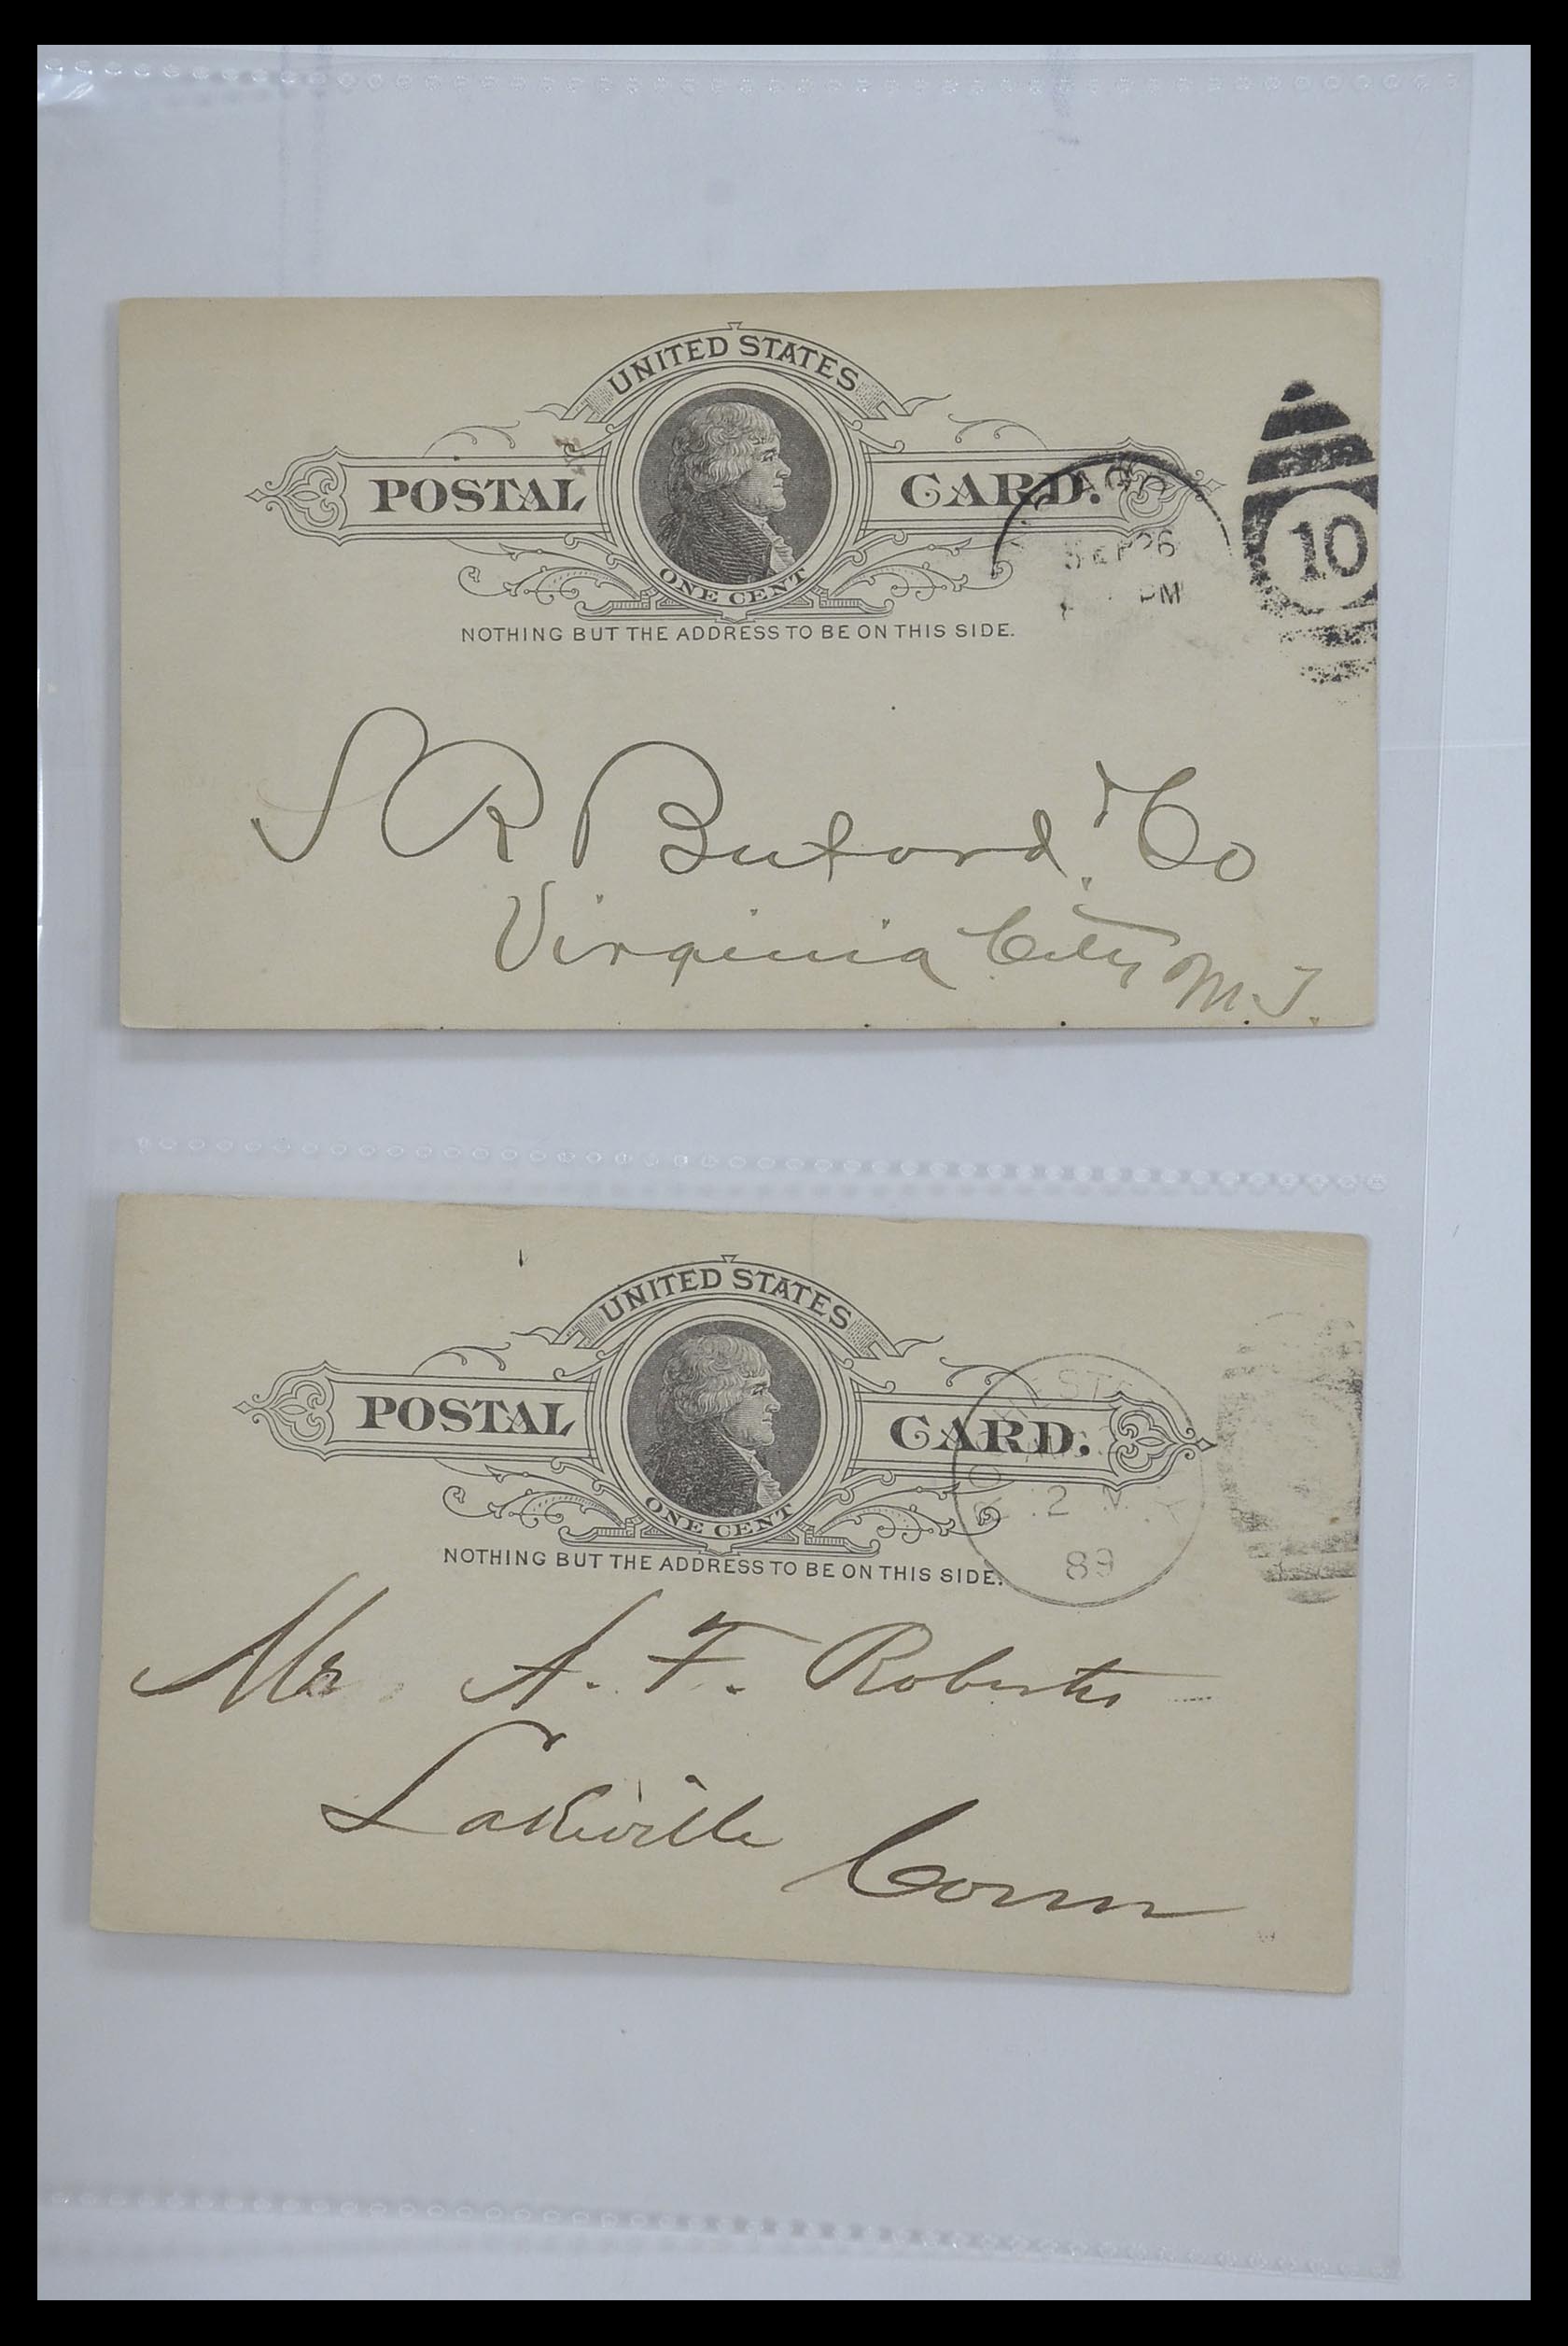 UNITED STATES
POSTAL CARD.
ONE CENT
NOTHING BUT THE ADDRESS TO BE ON THIS SIDE.
SEP 26
PM
10
S R Buford & Co
Virginia City M.T.
UNITED STATES
POSTAL CARD.
ONE CENT
NOTHING BUT THE ADDRESS TO BE ON THIS SIDE.
2
89
Mr. A. F. Roberts
Lakeville Conn